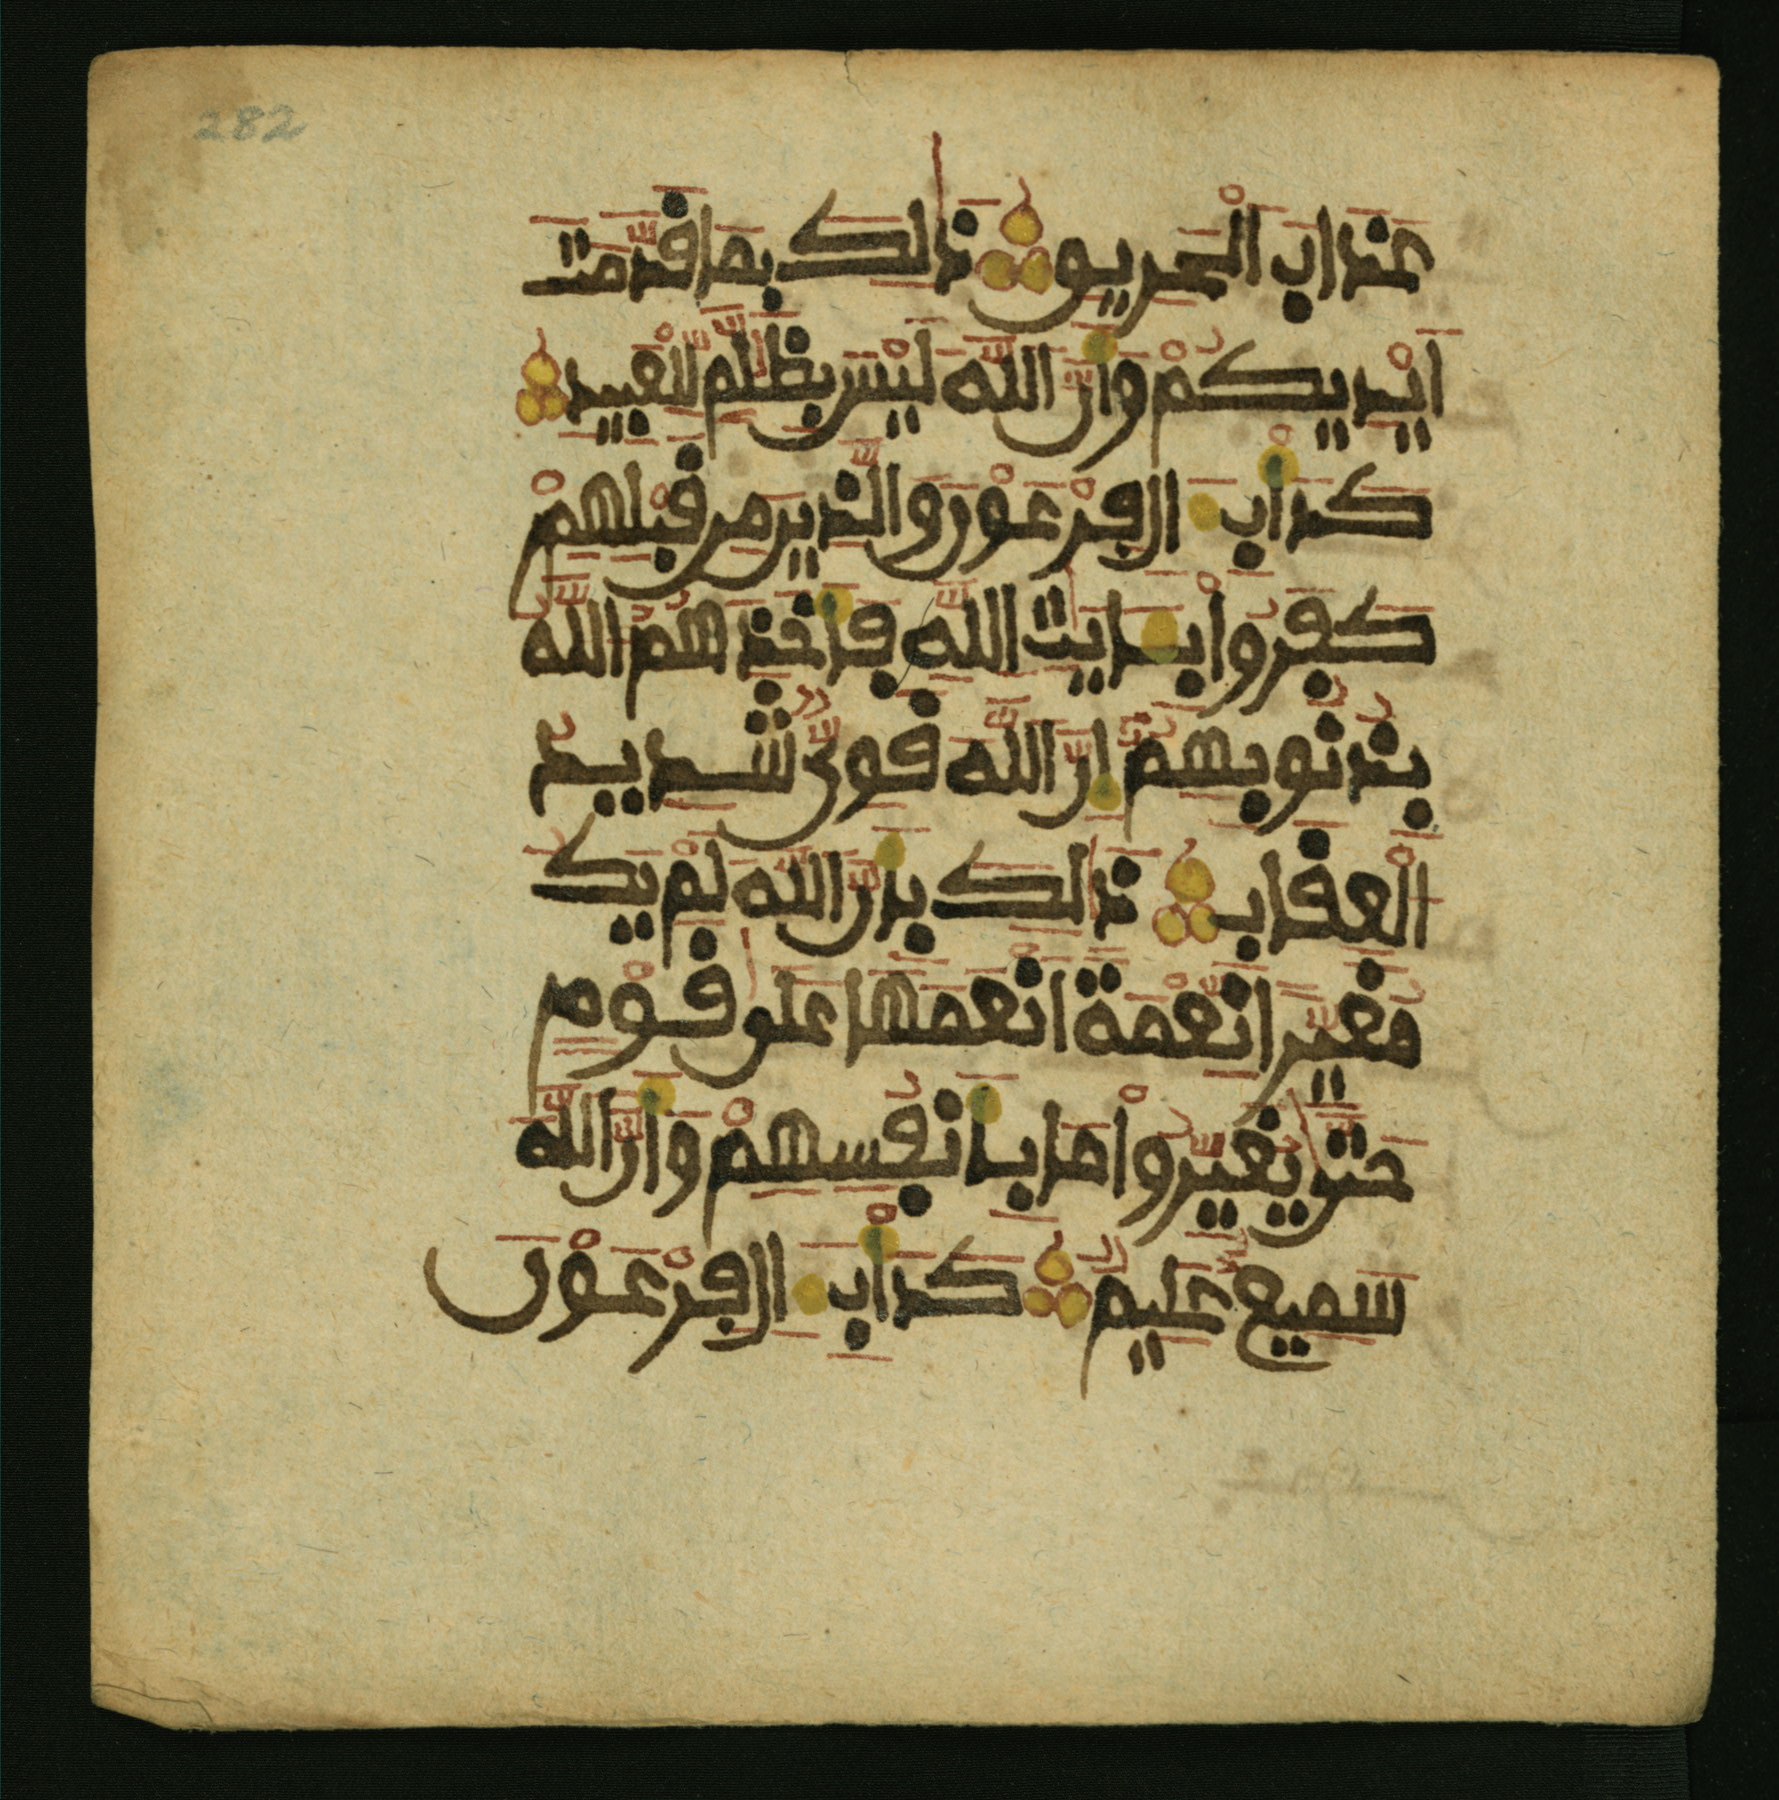 282
عَذَابَ الْحَرِيقِ ذَٰلِكَ بِمَا قَدَّمَتْ
اَيْدِيكُمْ وَأَنَّ اللَّهَ لَيْسَ بِظَلَّٰمٍ لِّلْعَبِيدِ
كَدَأْبِ ءَالِ فِرْعَوْنَ وَالَّذِينَ مِن قَبْلِهِمْ
كَفَرُواْ بِـَٔايَٰتِ اللَّهِ فَأَخَذَهُمُ اللَّهُ
بِذُنُوبِهِمْ إِنَّ اللَّهَ قَوِيٌّ شَدِيدُ
الْعِقَابِ ذَٰلِكَ بِأَنَّ اللَّهَ لَمْ يَكُ
مُغَيِّراً نِّعْمَةً اَنْعَمَهَا عَلَىٰ قَوْمٍ
حَتَّىٰ يُغَيِّرُواْ مَا بِأَنفُسِهِمْ وَأَنَّ اللَّهَ
سَمِيعٌ عَلِيمٌ كَدَأْبِ ءَالِ فِرْعَوْنَ